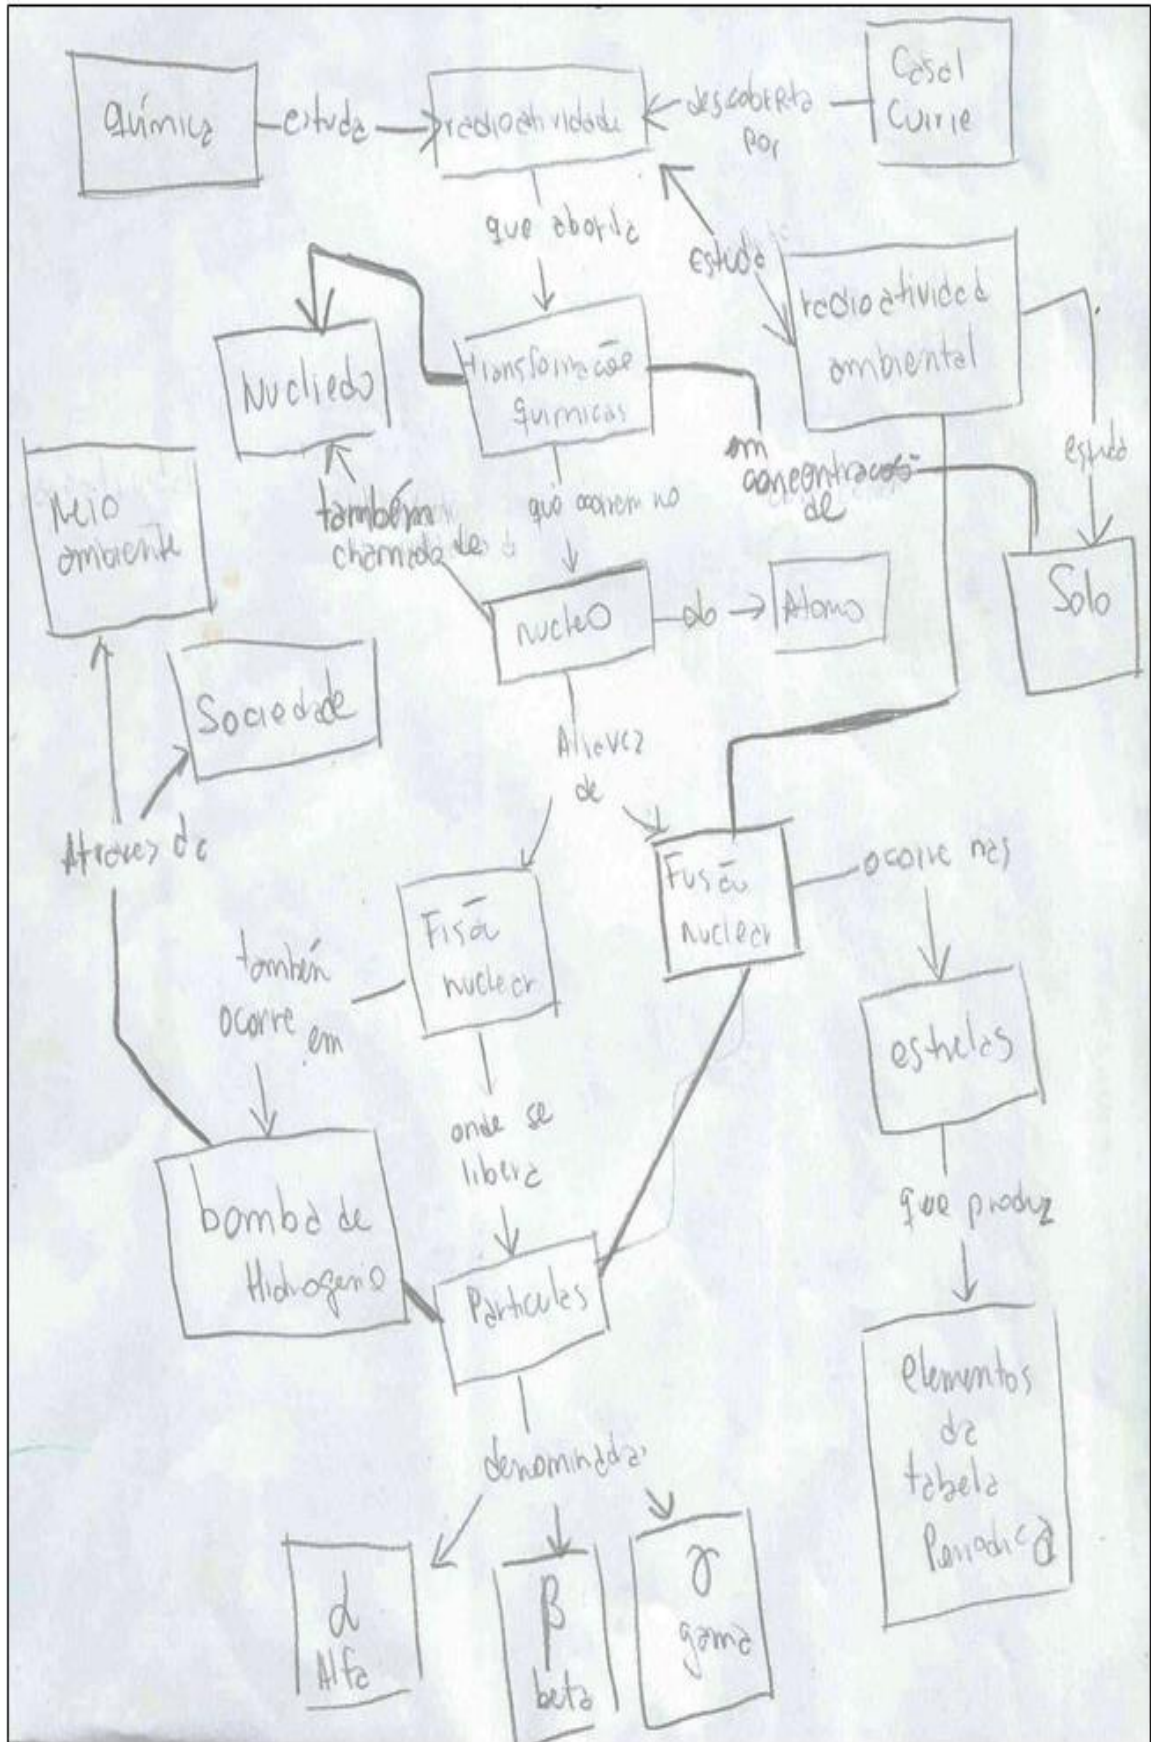 Química
estuda
radioatividade
descoberta
por
Casal
Currie
que aborda
estuda
radioatividad
ambiental
Nucliedo
transformaçõe
químicas
em
concentracoes
de
estuda
Solo
Meio
ambiente
também
chamado de
que ocorrem no
nucleo
do
Atomo
Sociedade
Atravez
de
Atraves da
Fisão
nuclear
Fusão
nuclear
ocorre nas
também
ocorre em
estrelas
onde se
libera
que produz
bomba de
Hidrogenio
Particulas
elementos
da
tabela
Periodica
denominadas
α
Alfa
β
beta
γ
gama